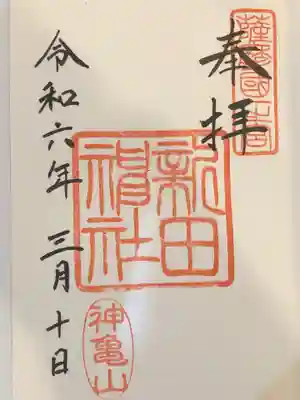 薩摩國一宮
奉拝
新田
神社
神亀山
令和六年 三月十日